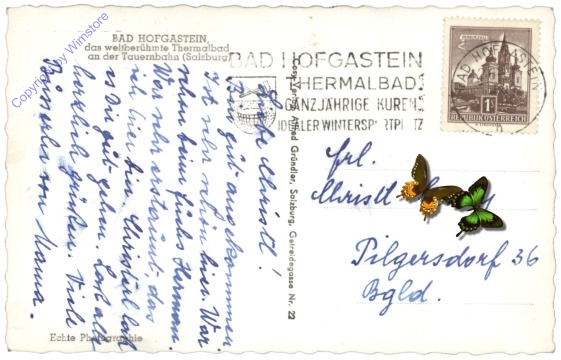 BAD HOFGASTEIN,
das weltberühmte Thermalbad
an der Tauernbahn (Salzburg)
Copyright by Wimstore
BAD HOFGASTEIN
THERMALBAD
GANZJÄHRIGE KUREN
IDEALER WINTERSPORTPLATZ
BAD HOFGASTEIN
MARIAZELL
1S
REPUBLIK ÖSTERREICH
Liebe Christl!
Bin gut angekommen
Ist sehr schön hier. War
schon beim Hermann.
war sehr erstaunt, das
ich hier bin. Christerl laß
es Dir gut gehen. Laß alle
herzlich grüßen. Viele
Busserln von Mama.
Alfred Gründler, Salzburg, Getreidegasse Nr. 22
Frl.
Christl
Pilgersdorf 36
Bgld.
Echte Photographie